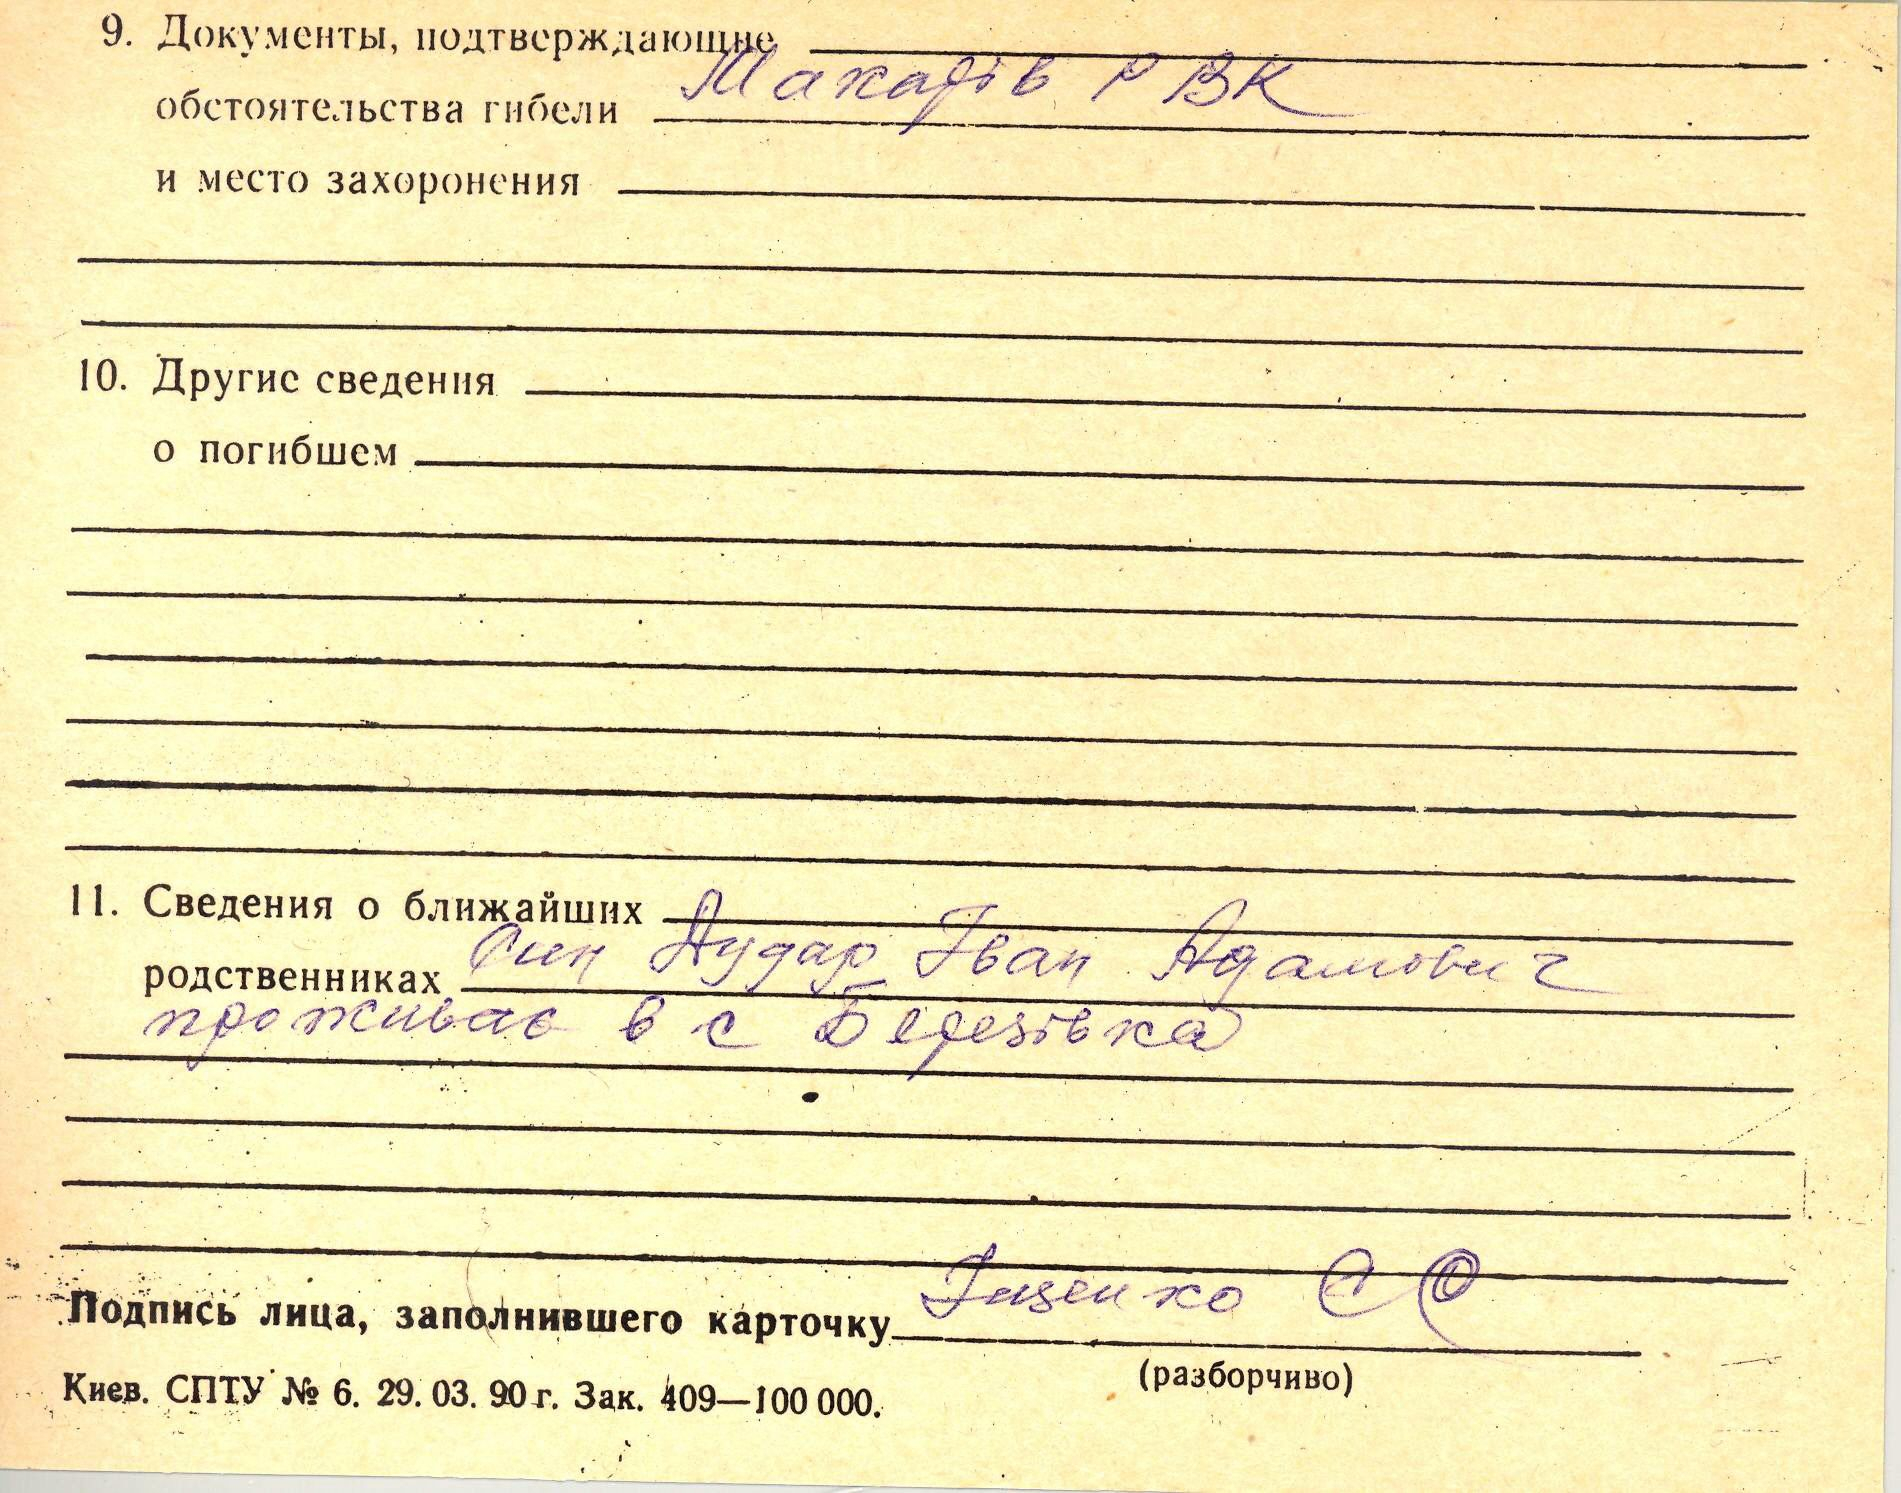 9. Документы, подтверждающие
обстоятельства гибели Макарів РВК
и место захоронения
10. Другие сведения
о погибшем
11. Сведения о ближайших
родственниках Син Дудар Іван Адамович
проживає в с Березівка
Подпись лица, заполнившего карточку Іщенко С
(разборчиво)
Киев. СПТУ № 6. 29. 03. 90 г. Зак. 409—100 000.